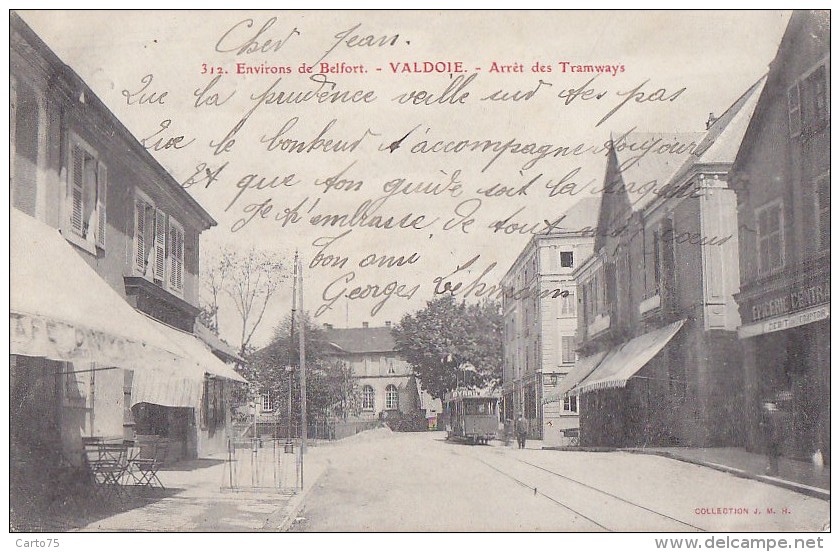 Cher Jean.
312. Environs de Belfort. - VALDOIE. - Arrêt des Tramways
Que la prudence veille sur tes pas
Que le bonheur t'accompagne toujours
Et que ton guide soit la sagesse
Je t'embrasse de tout mon coeur
ton ami
Georges
CAFÉ
EPICERIE CENTRA
DEBIT DE COMPTOIR
COLLECTION J. M. H.
Carto75
posted on: www.delcampe.net